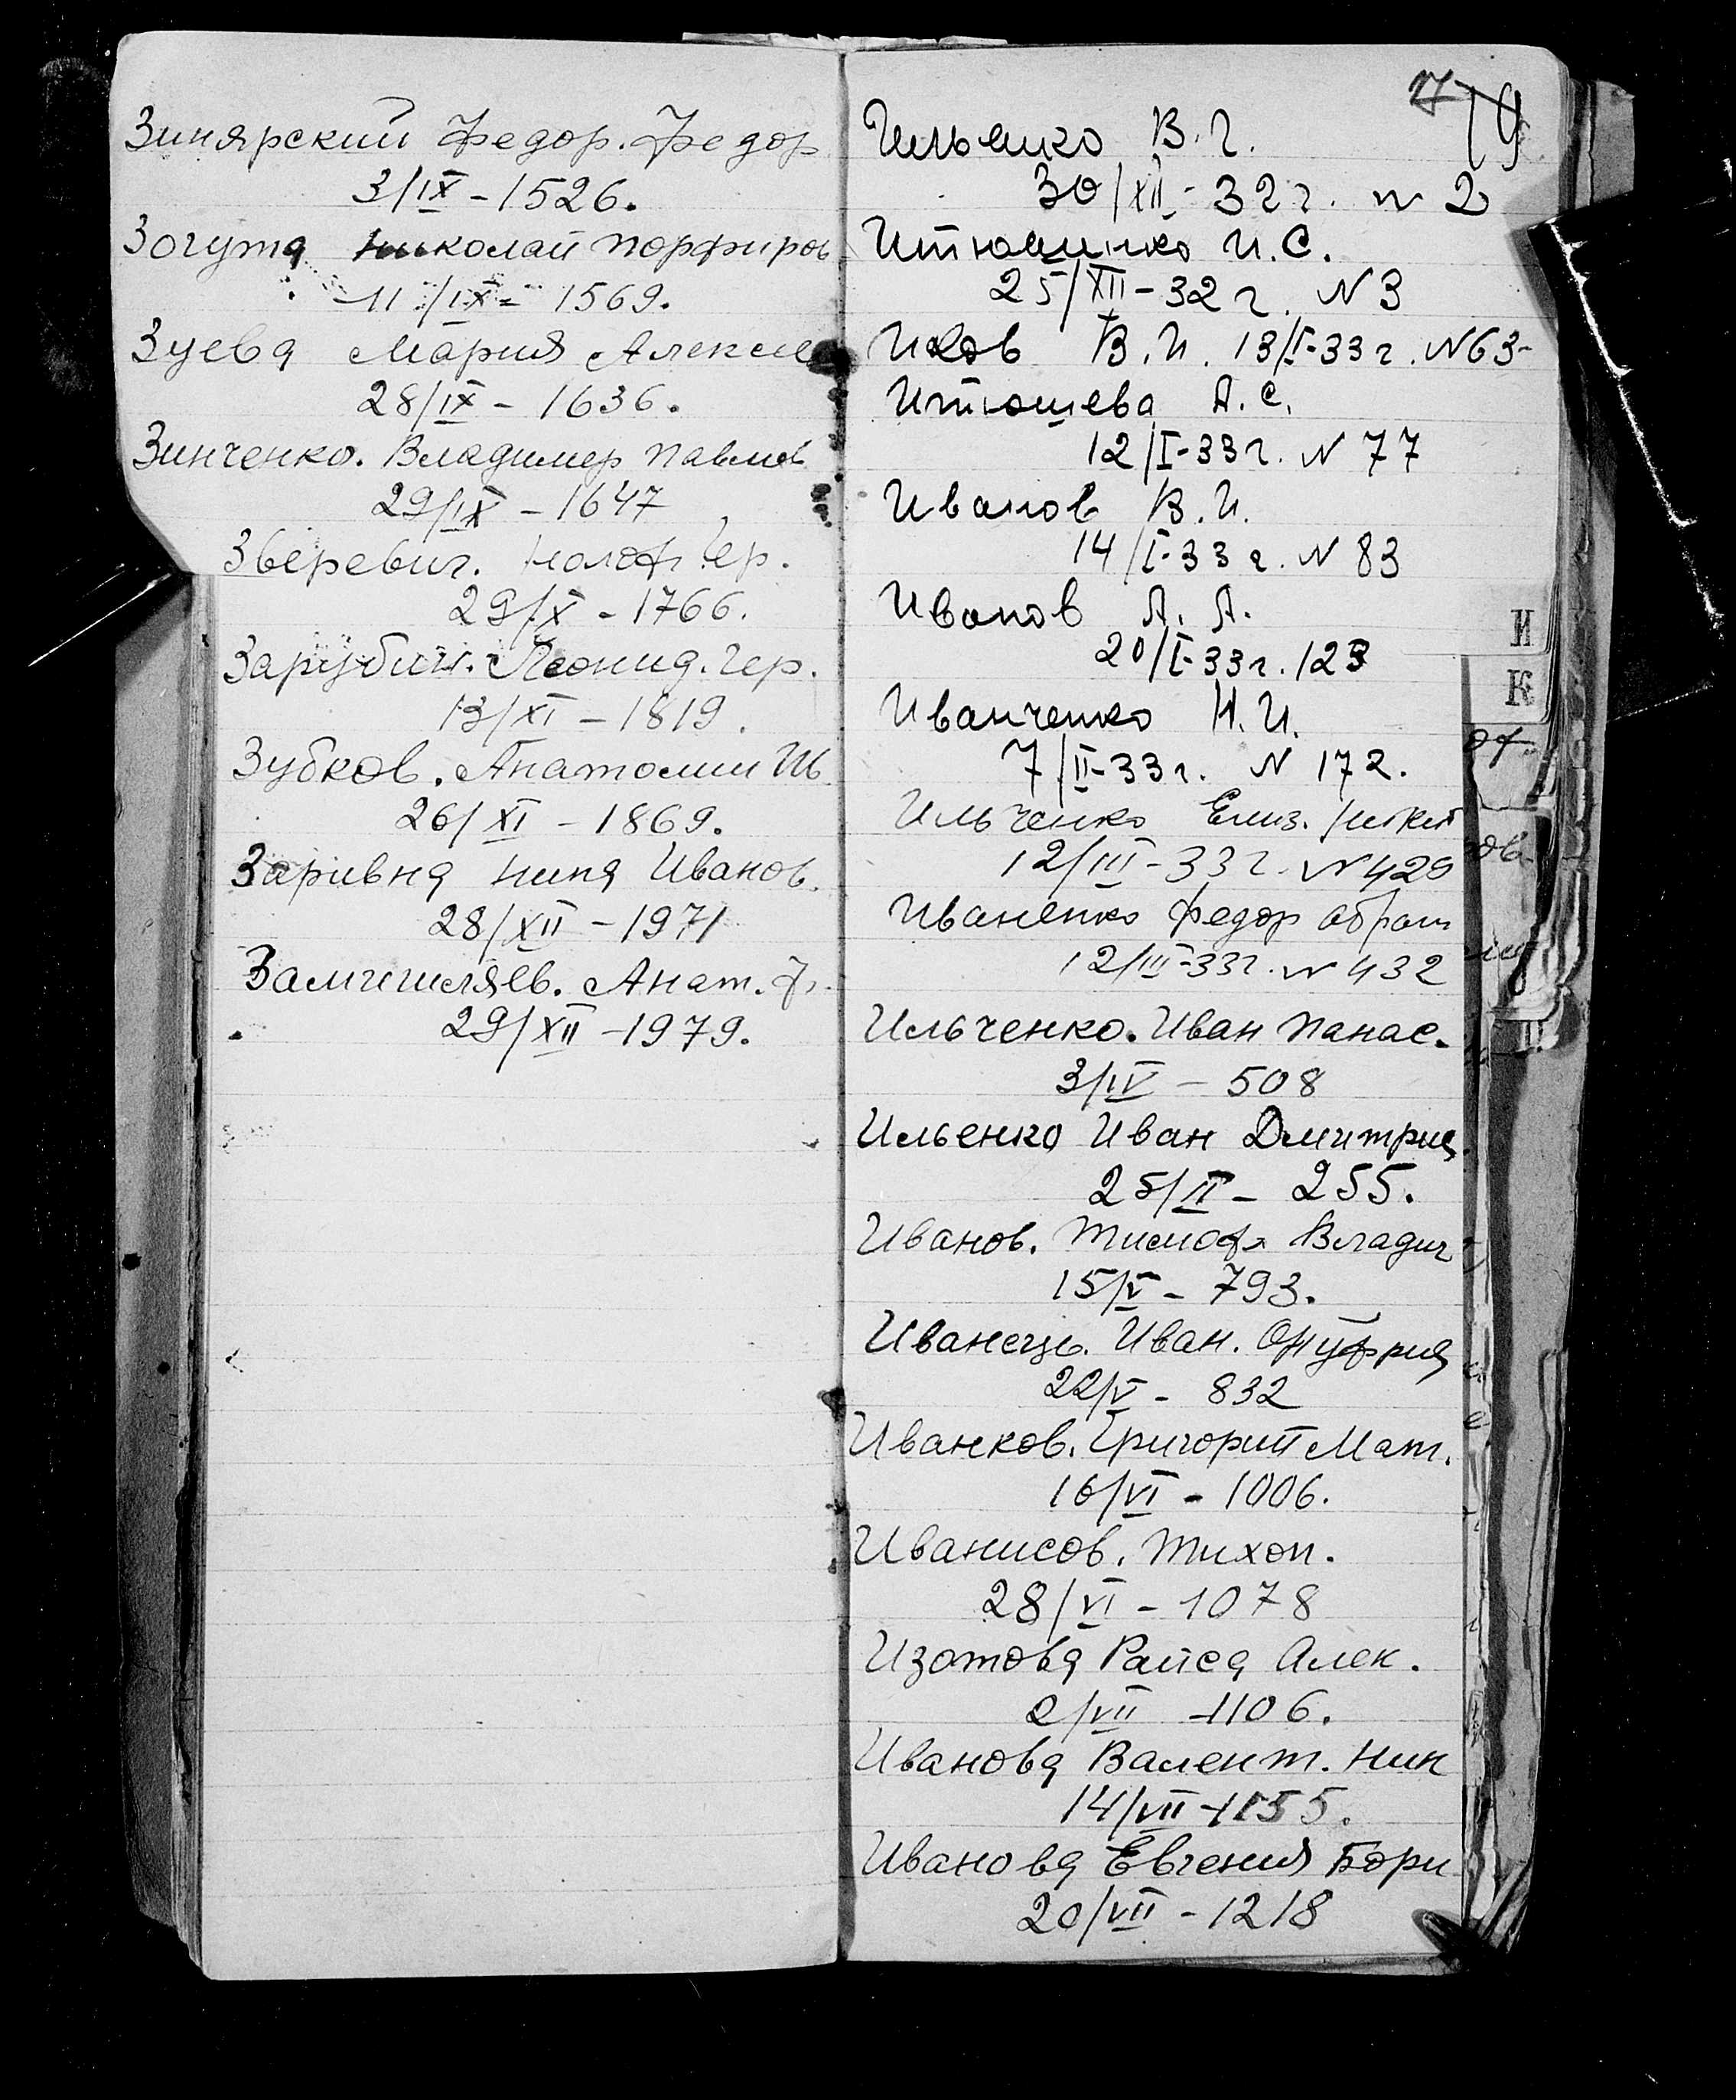 Зинярский Федор. Федор
3/IX - 1526.
Зогутя Николай Порфиров
11/IX - 1569.
Зуева Мария Алексее
28/IX - 1636.
Зинченко. Владимер Павлов
29/IX - 1647
Зверевич. Гер.
29/X - 1766.
Зарубин. Леонид. Гер.
13/XI - 1819.
Зубков. Анатолии Ив
26/XI - 1869.
Заривня Нина Иванов.
28/XII - 1971
Анат. Ф.
29/XII - 1979.
17 19
Ильенко В. Г.
30/XII - 32 г. N 2
И. С.
25/XII - 32 г. N 3
В. И. 13/I-33 г. N 63-
Итюшева А. С.
12/I-33 г. N 77
Иванов В. И.
14/I-33 г. N 83
Иванов А. А.
20/I-33 г. 123
Иванченко Н. И.
7/II-33 г. N 172.
Ильченко Елиз. Никит
12/III-33 г. N 429
Иваненко Федор Абрам
12/III-33 г. N 432
Ильченко. Иван Панас.
3/IV - 508
Ильенко Иван Дмитрие
25/II - 255.
Иванов. Тимоф Владим
15/V - 793.
Иванець. Иван. Онуфрия
22/V - 832
Иванков. Григорий Мат.
16/VI - 1006.
Иванисов. Тихон.
28/VI - 1078
Изотова Раиса Алек.
2/VII - 1106.
Иванова Валент. Ник
14/VII - 1155.
Иванова Евгения Бори
20/VII - 1218
И
К